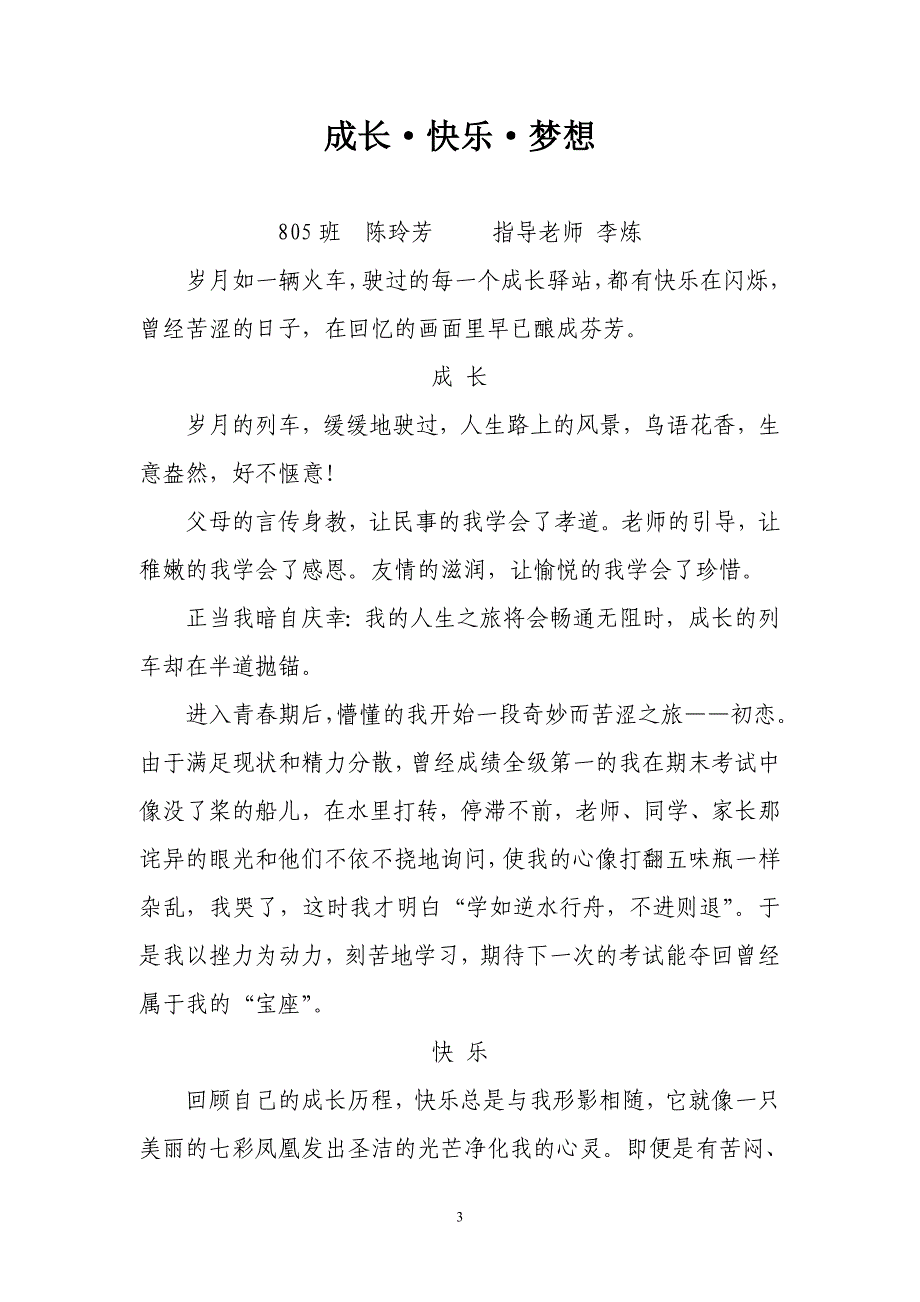 成长·快乐·梦想
805班 陈玲芳 指导老师 李炼
岁月如一辆火车，驶过的每一个成长驿站，都有快乐在闪烁，
曾经苦涩的日子，在回忆的画面里早已酿成芬芳。
成 长
岁月的列车，缓缓地驶过，人生路上的风景，鸟语花香，生
意盎然，好不惬意！
父母的言传身教，让民事的我学会了孝道。老师的引导，让
稚嫩的我学会了感恩。友情的滋润，让愉悦的我学会了珍惜。
正当我暗自庆幸：我的人生之旅将会畅通无阻时，成长的列
车却在半道抛锚。
进入青春期后，懵懂的我开始一段奇妙而苦涩之旅——初恋。
由于满足现状和精力分散，曾经成绩全级第一的我在期末考试中
像没了桨的船儿，在水里打转，停滞不前，老师、同学、家长那
诧异的眼光和他们不依不挠地询问，使我的心像打翻五味瓶一样
杂乱，我哭了，这时我才明白“学如逆水行舟，不进则退”。于
是我以挫力为动力，刻苦地学习，期待下一次的考试能夺回曾经
属于我的“宝座”。
快 乐
回顾自己的成长历程，快乐总是与我形影相随，它就像一只
美丽的七彩凤凰发出圣洁的光芒净化我的心灵。即便是有苦闷、
3